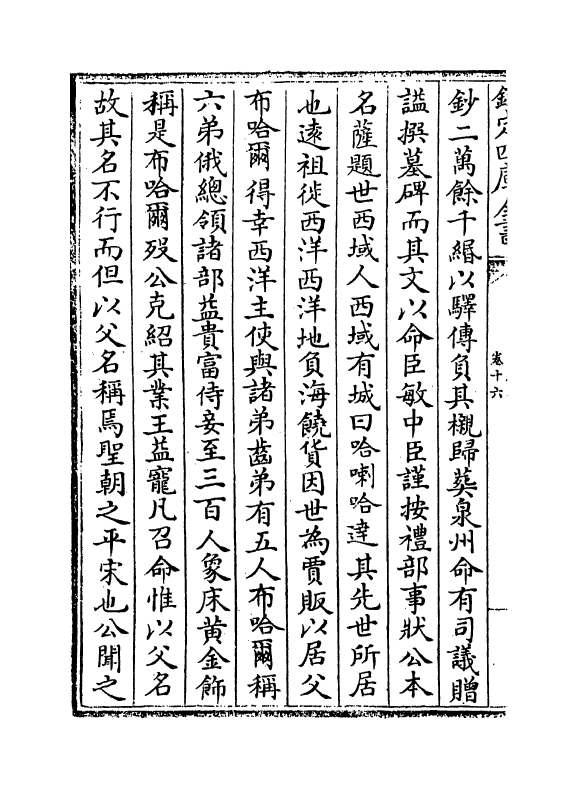 欽定四庫全書
卷十六
鈔二萬餘千緡以驛傳負其櫬歸葬泉州命有司議贈
諡撰墓碑而其文以命臣敏中臣謹按禮部事狀公本
名薩題世西域人西域有城曰哈喇哈達其先世所居
也遠祖徙西洋西洋地負海饒貨因世為賈販以居父
布哈爾得幸西洋主使與諸弟齒弟有五人布哈爾稱
六弟俄總領諸部益貴富侍妾至三百人象床黃金飾
稱是布哈爾歿公克紹其業王益寵凡召命惟以父名
故其名不行而但以父名稱焉聖朝之平宋也公聞之